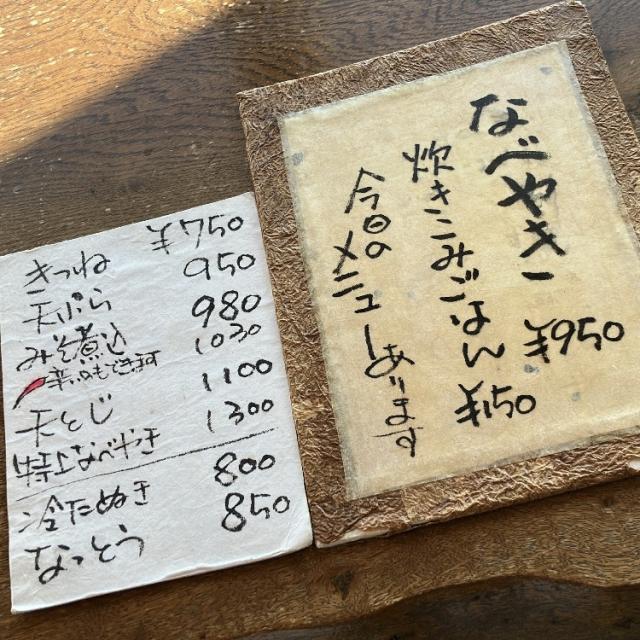 なべやき ¥950
炊きこみごはん ¥150
今日のメニューあります
きつね ¥750
天ぷら 950
みそ煮込 980
辛いのもできます 1030
天とじ 1100
特上なべやき 1300
・冷たぬき 800
なっとう 850